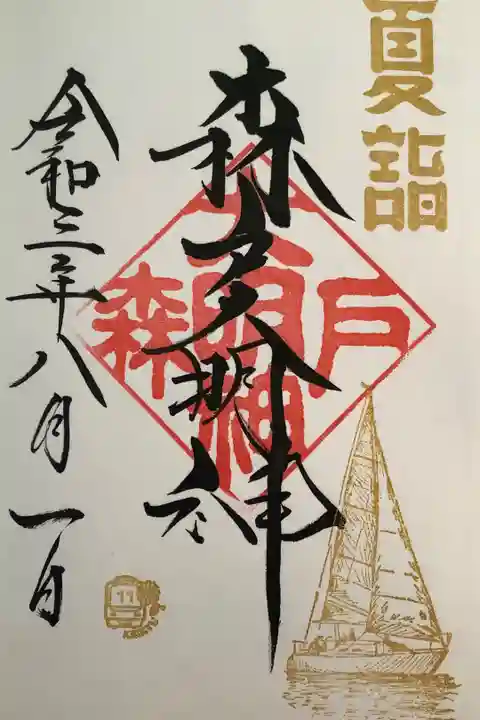 夏詣
森戸大明神
森戸大明神
令和三年八月一日
11